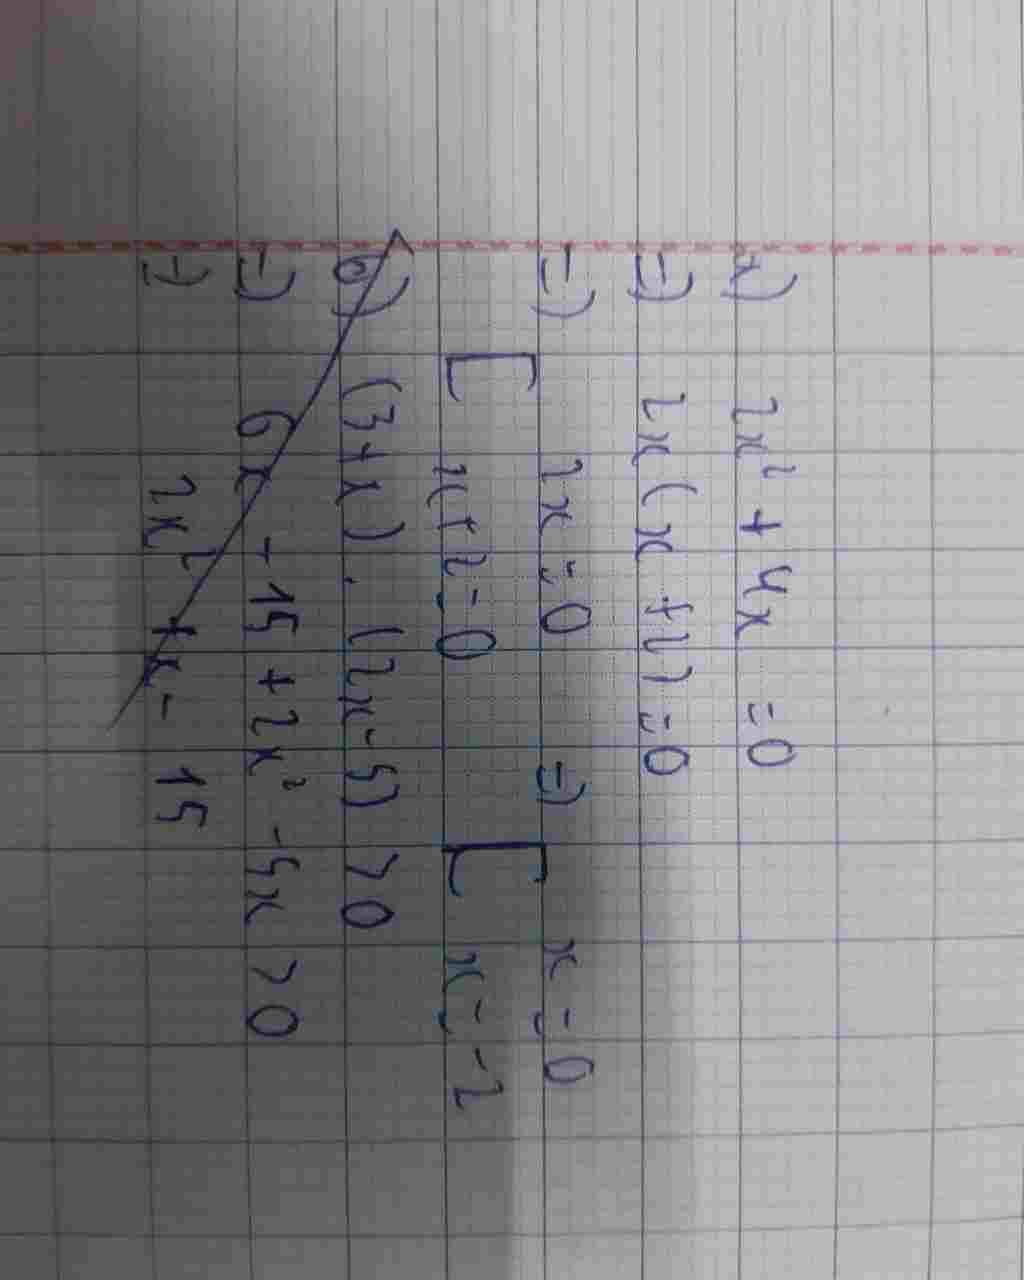 a) 2x² + 4x = 0
=) 2x(x + 2) = 0
=) [ 2x = 0 =) [ x = 0
x + 2 = 0 x = -2
b) (3+x) . (2x-5) > 0
=) 6x - 15 + 2x² - 5x > 0
=) 2x² + x - 15